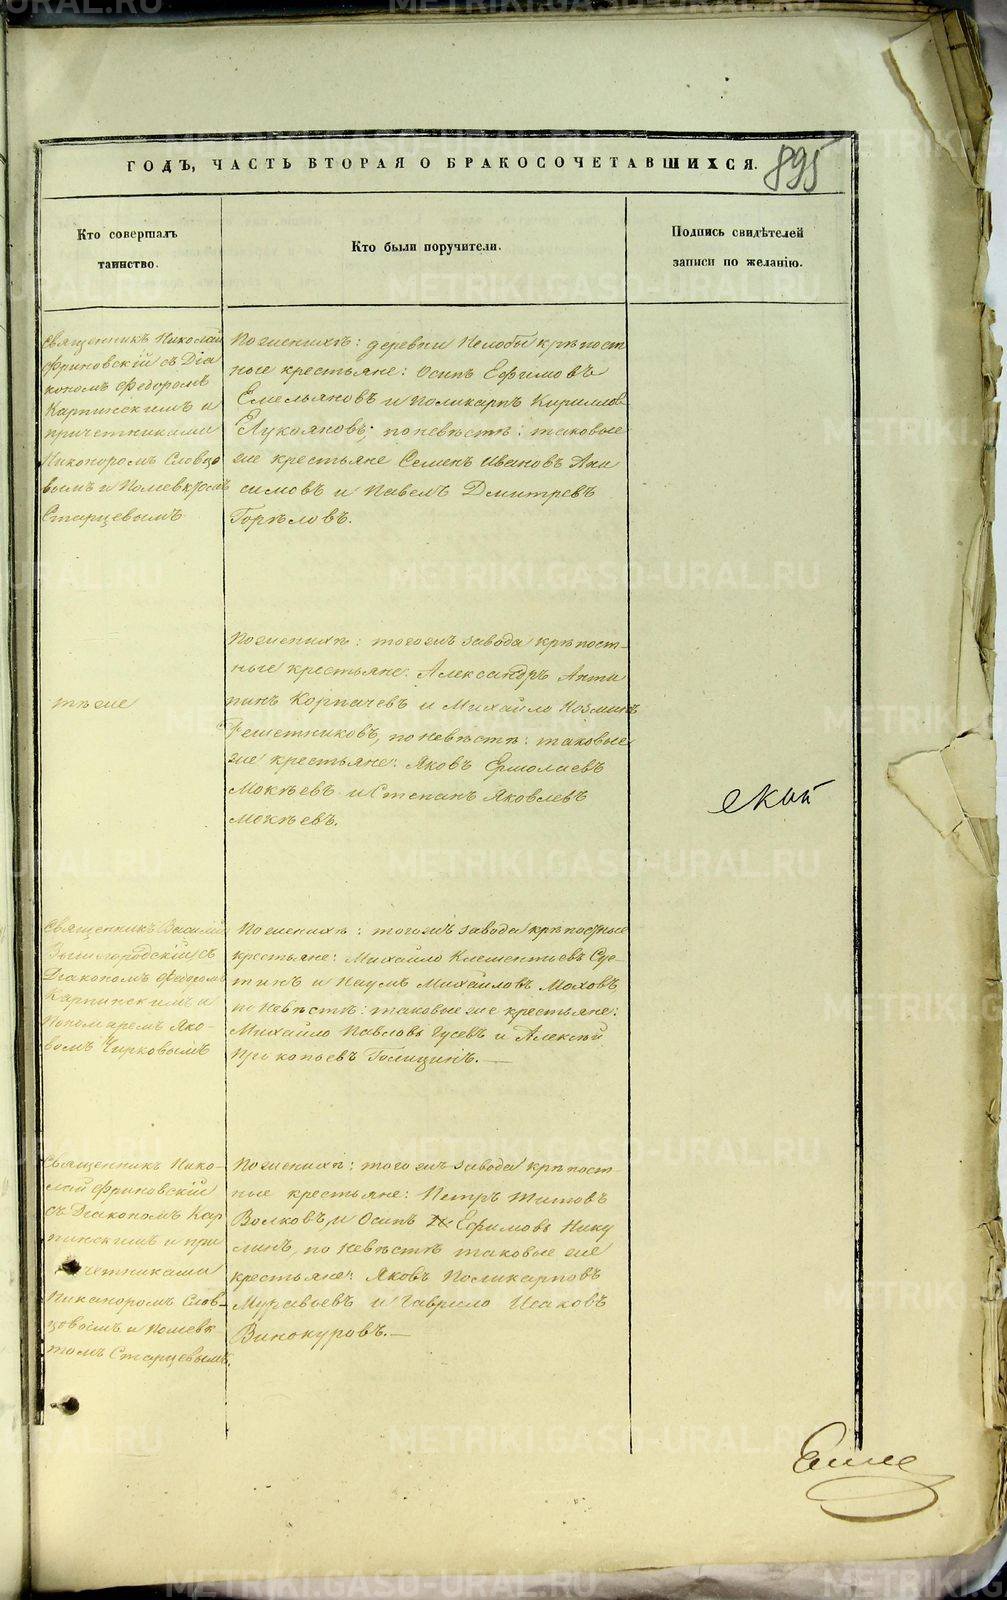 ГОДЪ, ЧАСТЬ ВТОРАЯ О БРАКОСОЧЕТАВШИХСЯ.
895
Кто совершалъ
таинство.
Кто были поручители.
Подпись свидѣтелей
записи по желанію.
Священникъ Николай
Фриновскій съ Діа
кономъ Федоромъ
Карпинскимъ и
причетниками
Никоноромъ Словцо
вымъ и Полевктомъ
Старцевымъ
По женихѣ: деревни Нелобы крѣпост
ные крестьяне: Осипъ Ефимовъ
Емельяновъ и Поликарпъ Кириллов
Лукояновъ; по невѣстѣ: таковые
же крестьяне Семенъ Ивановъ Ани
симовъ и Павелъ Дмитревъ
Горѣловъ.
тѣ же
По женихѣ: тогожъ завода крѣпост-
ные крестьяне: Александръ Анти
пинъ Корпачевъ и Михайло Козминъ
Решетниковъ, по невѣстѣ: таковые
же крестьяне: Яковъ Ермолаевъ
Мокѣевъ и Степанъ Яковлевъ
Мокѣевъ.
ской
Священникъ Василій
Вышегородскій съ
Діакономъ Федоромъ
Карпинскимъ и
Пономаремъ Яко-
вомъ Чирковымъ
По женихѣ: тогожъ завода крѣпостные
крестьяне: Михайло Клементьевъ Сус-
тинъ и Наумъ Михайловъ Моховъ
по невѣстѣ: таковые же крестьяне:
Михайло Павловъ Гусевъ и Алексѣй
Прокопьевъ Голицинъ. —
Священникъ Нико-
лай Фриновскій
съ Діакономъ Кар
пинскимъ и при
четниками
Никаноромъ Слов-
цовымъ и Полевк
томъ Старцевымъ.
По женихѣ: тогожъ завода крѣпост-
ные крестьяне: Петръ Титовъ
Волковъ, и Осипъ Ефимовъ Нику
линъ, по невѣстѣ таковые же
крестьяне: Яковъ Поликарповъ
Муравьевъ и Гаврило Исаковъ
Винокуровъ. —
METRIKI.GASO-URAL.RU